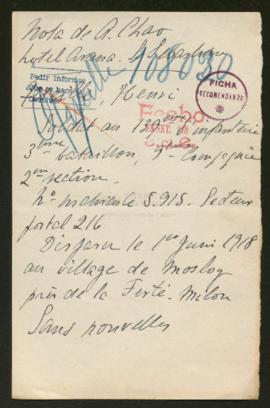 Nota de A. Chao
hotel Arana. S. Sebastian
108030
Pedir informes
FICHA
RECOMENDANTE
Henri
Soldat au d'infanterie
3ème bataillon, Compagnie
2me section.
No matricule 5.915. Secteur
postal 216
Disparu le 1er Juin 1918
au village de Mosloy
près de la Ferté-Milon
Sans nouvelles